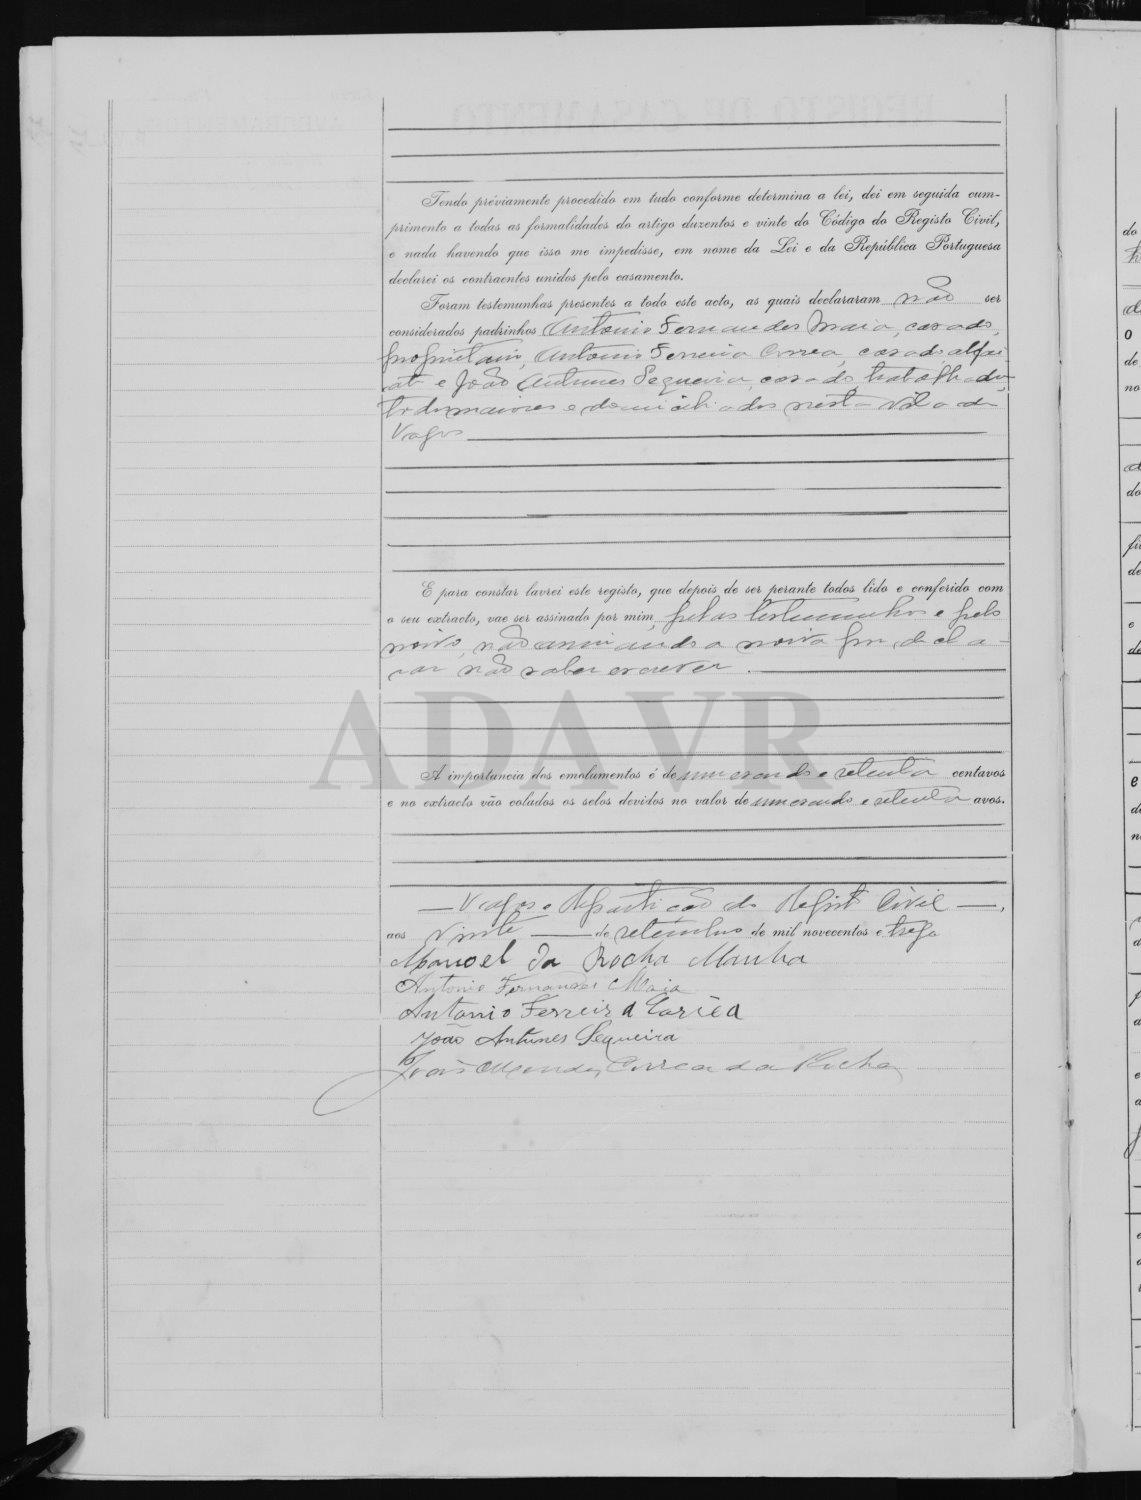 Tendo préviamente procedido em tudo conforme determina a lei, dei em seguida cum-
primento a todas as formalidades do artigo duzentos e vinte do Código do Registo Civil,
e nada havendo que isso me impedisse, em nome da Lei e da República Portuguesa
declarei os contraentes unidos pelo casamento.
Foram testemunhas presentes a todo este acto, as quais declararam não ser
considerados padrinhos Antonio Fernandes Maia, casado,
proprietario, Antonio Ferreira Correa, casado, alfai-
ate e João Antunes Sequeira, casado, trabalhador,
todos maiores e domiciliados nesta Vila de
Vagos
E para constar lavrei este registo, que depois de ser perante todos lido e conferido com
o seu extracto, vae ser assinado por mim, pelas testemunhas e pelo
noivo, não assinando a noiva por decla-
rar não saber escrever.
ADAVR
A importancia dos emolumentos é de um escudo e setenta centavos
e no extracto vão colados os selos devidos no valor de um escudo e setenta avos.
Vagos e Repartição do Registo Civil,
aos vinte de setembro de mil novecentos e treze
Manoel da Rocha Manha
Antonio Fernandes Maia
Antonio Ferreira Corrêa
João Antunes Sequeira
João Mendes Correa da Rocha